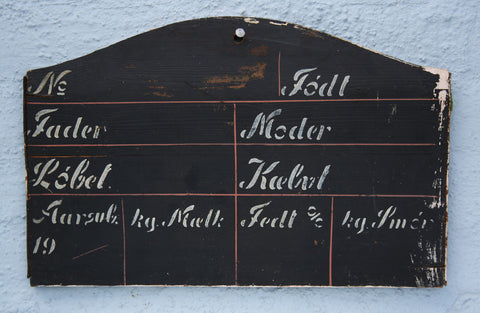 No Födt
Fader Moder
Löbet Kælvet
Aarsudb. kg. Mælk Fedt % kg. Smör
19